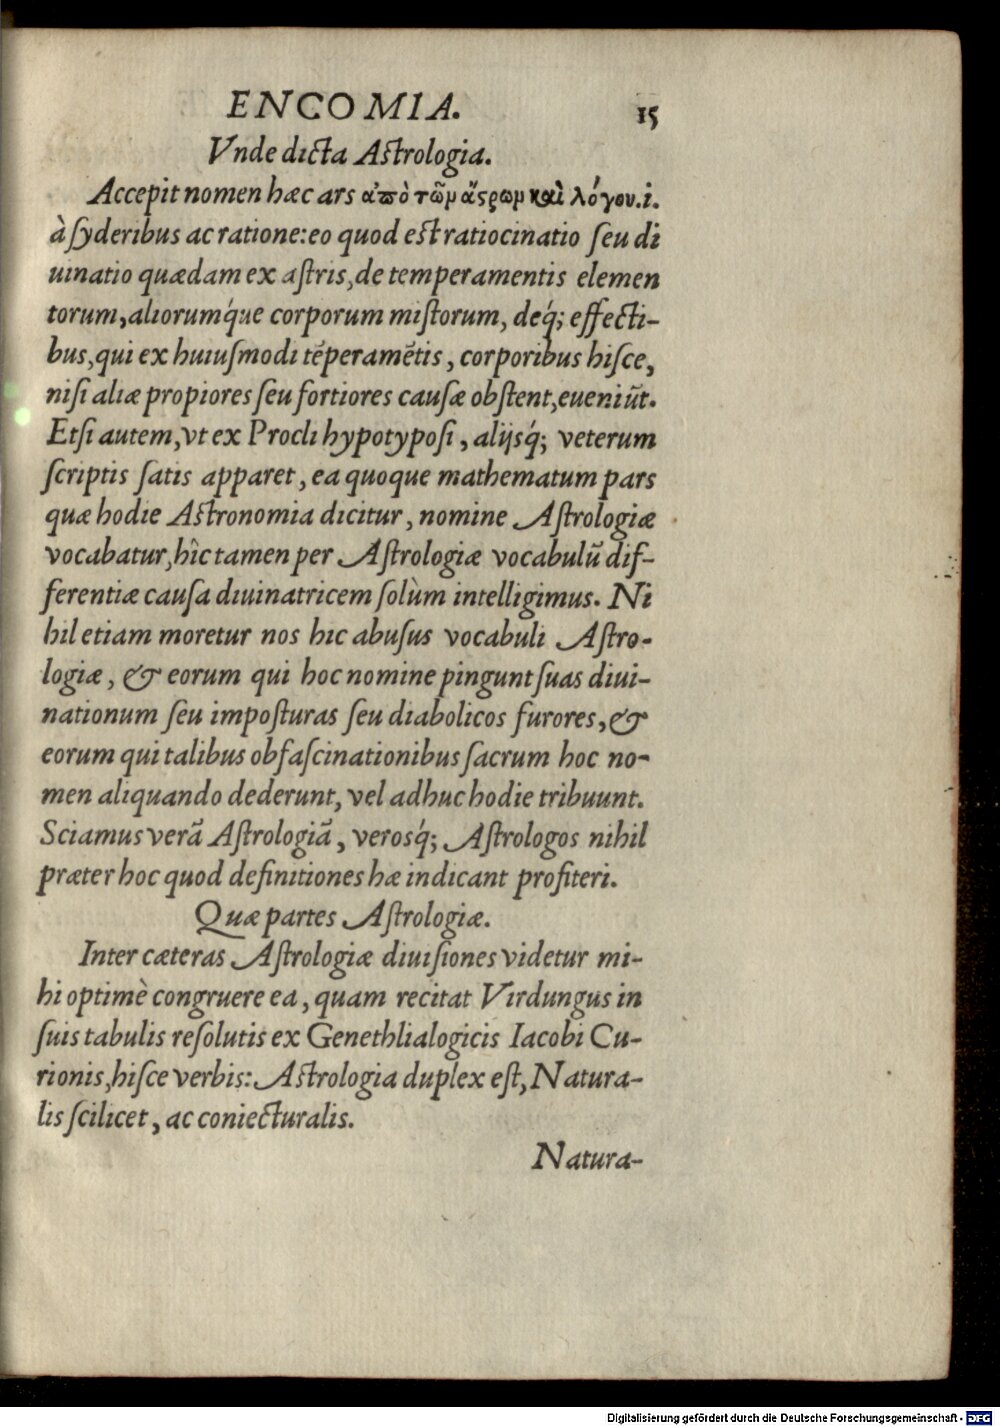 ENCOMIA. 15
Vnde dicta Astrologia.
Accepit nomen hæc ars ἀπὸ τῶμ ἄςρωμ καὶ λόγου.i.
à ſyderibus ac ratione: eo quod est ratiocinatio ſeu di
uinatio quædam ex aſtris, de temperamentis elemen
torum, aliorumq́ue corporum miſtorum, deq́; effecti-
bus, qui ex huiuſmodi tẽperamẽtis, corporibus hiſce,
niſi aliæ propiores ſeu fortiores cauſæ obſtent, eueniũt.
Etſi autem, vt ex Procli hypotypoſi, alijsq́; veterum
ſcriptis ſatis apparet, ea quoque mathematum pars
quæ hodie Astronomia dicitur, nomine Aſtrologiæ
vocabatur, hîc tamen per Aſtrologiæ vocabulũ dif-
ferentiæ cauſa diuinatricem ſolùm intelligimus. Ni
hil etiam moretur nos hic abuſus vocabuli Aſtro-
logiæ, & eorum qui hoc nomine pingunt ſuas diui-
nationum ſeu impoſturas ſeu diabolicos furores, &
eorum qui talibus obfaſcinationibus ſacrum hoc no-
men aliquando dederunt, vel adhuc hodie tribuunt.
Sciamus verã Aſtrologiã, verosq́; Aſtrologos nihil
præter hoc quod definitiones hæ indicant profiteri.
Quæ partes Aſtrologiæ.
Inter cæteras Aſtrologiæ diuiſiones videtur mi-
hi optimè congruere ea, quam recitat Virdungus in
ſuis tabulis reſolutis ex Genethlialogicis Iacobi Cu-
rionis, hiſce verbis: Astrologia duplex eſt, Natura-
lis ſcilicet, ac coniecturalis.
Natura-
Digitalisierung gefördert durch die Deutsche Forschungsgemeinschaft - DFG